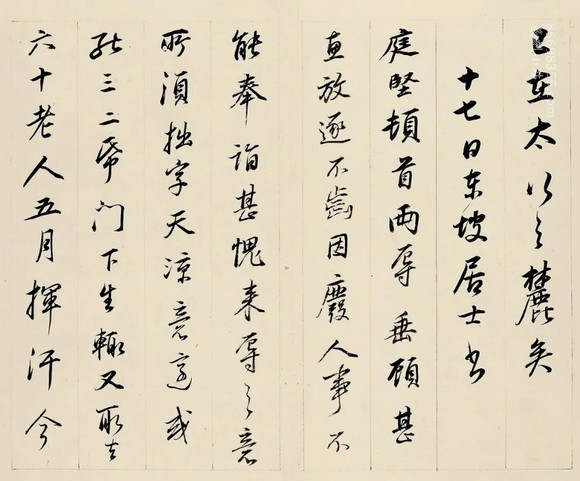 已在太行之麓矣
十七日東坡居士書
庭堅頓首兩辱垂顧甚
惠放逐不齒因廢人事不
能奉詣甚愧來辱之意
所須拙字天涼意適或
能三二帋門下生輒又取去
六十老人五月揮汗今